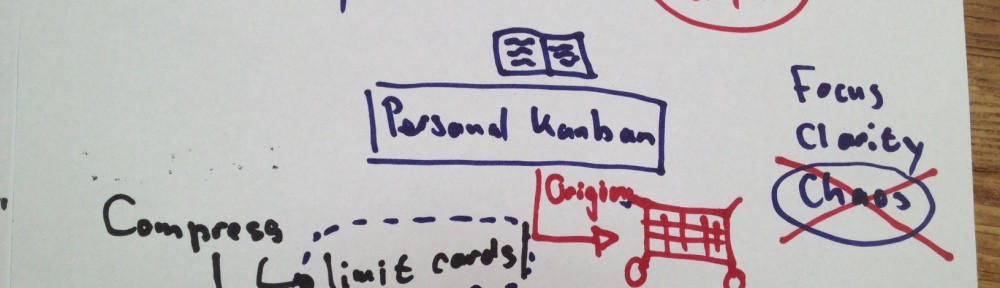 Personal Kanban
Focus
Clarity
Chaos
Origins
Compress
limit cards